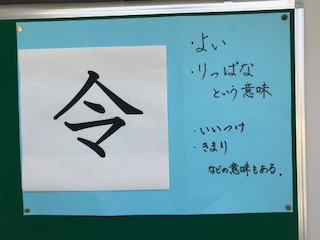 令
・よい
・りっぱな
という意味
・いいつけ
・きまり
などの意味もある.